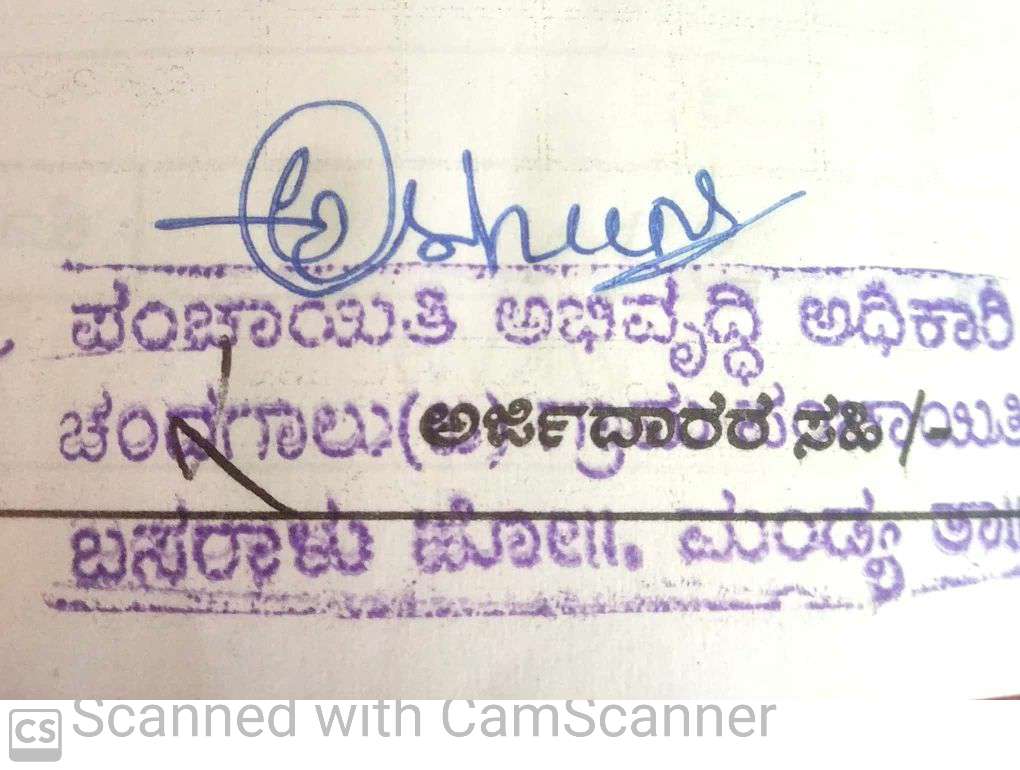 ಪಂಚಾಯಿತಿ ಅಭಿವೃದ್ಧಿ ಅಧಿಕಾರಿ
ಚಂದಗಾಲು
ಅರ್ಜಿದಾರರ ಸಹಿ/-
ಬಸರಾಳು ಹೋಬಳಿ. ಮಂಡ್ಯ ತಾ||
CS Scanned with CamScanner